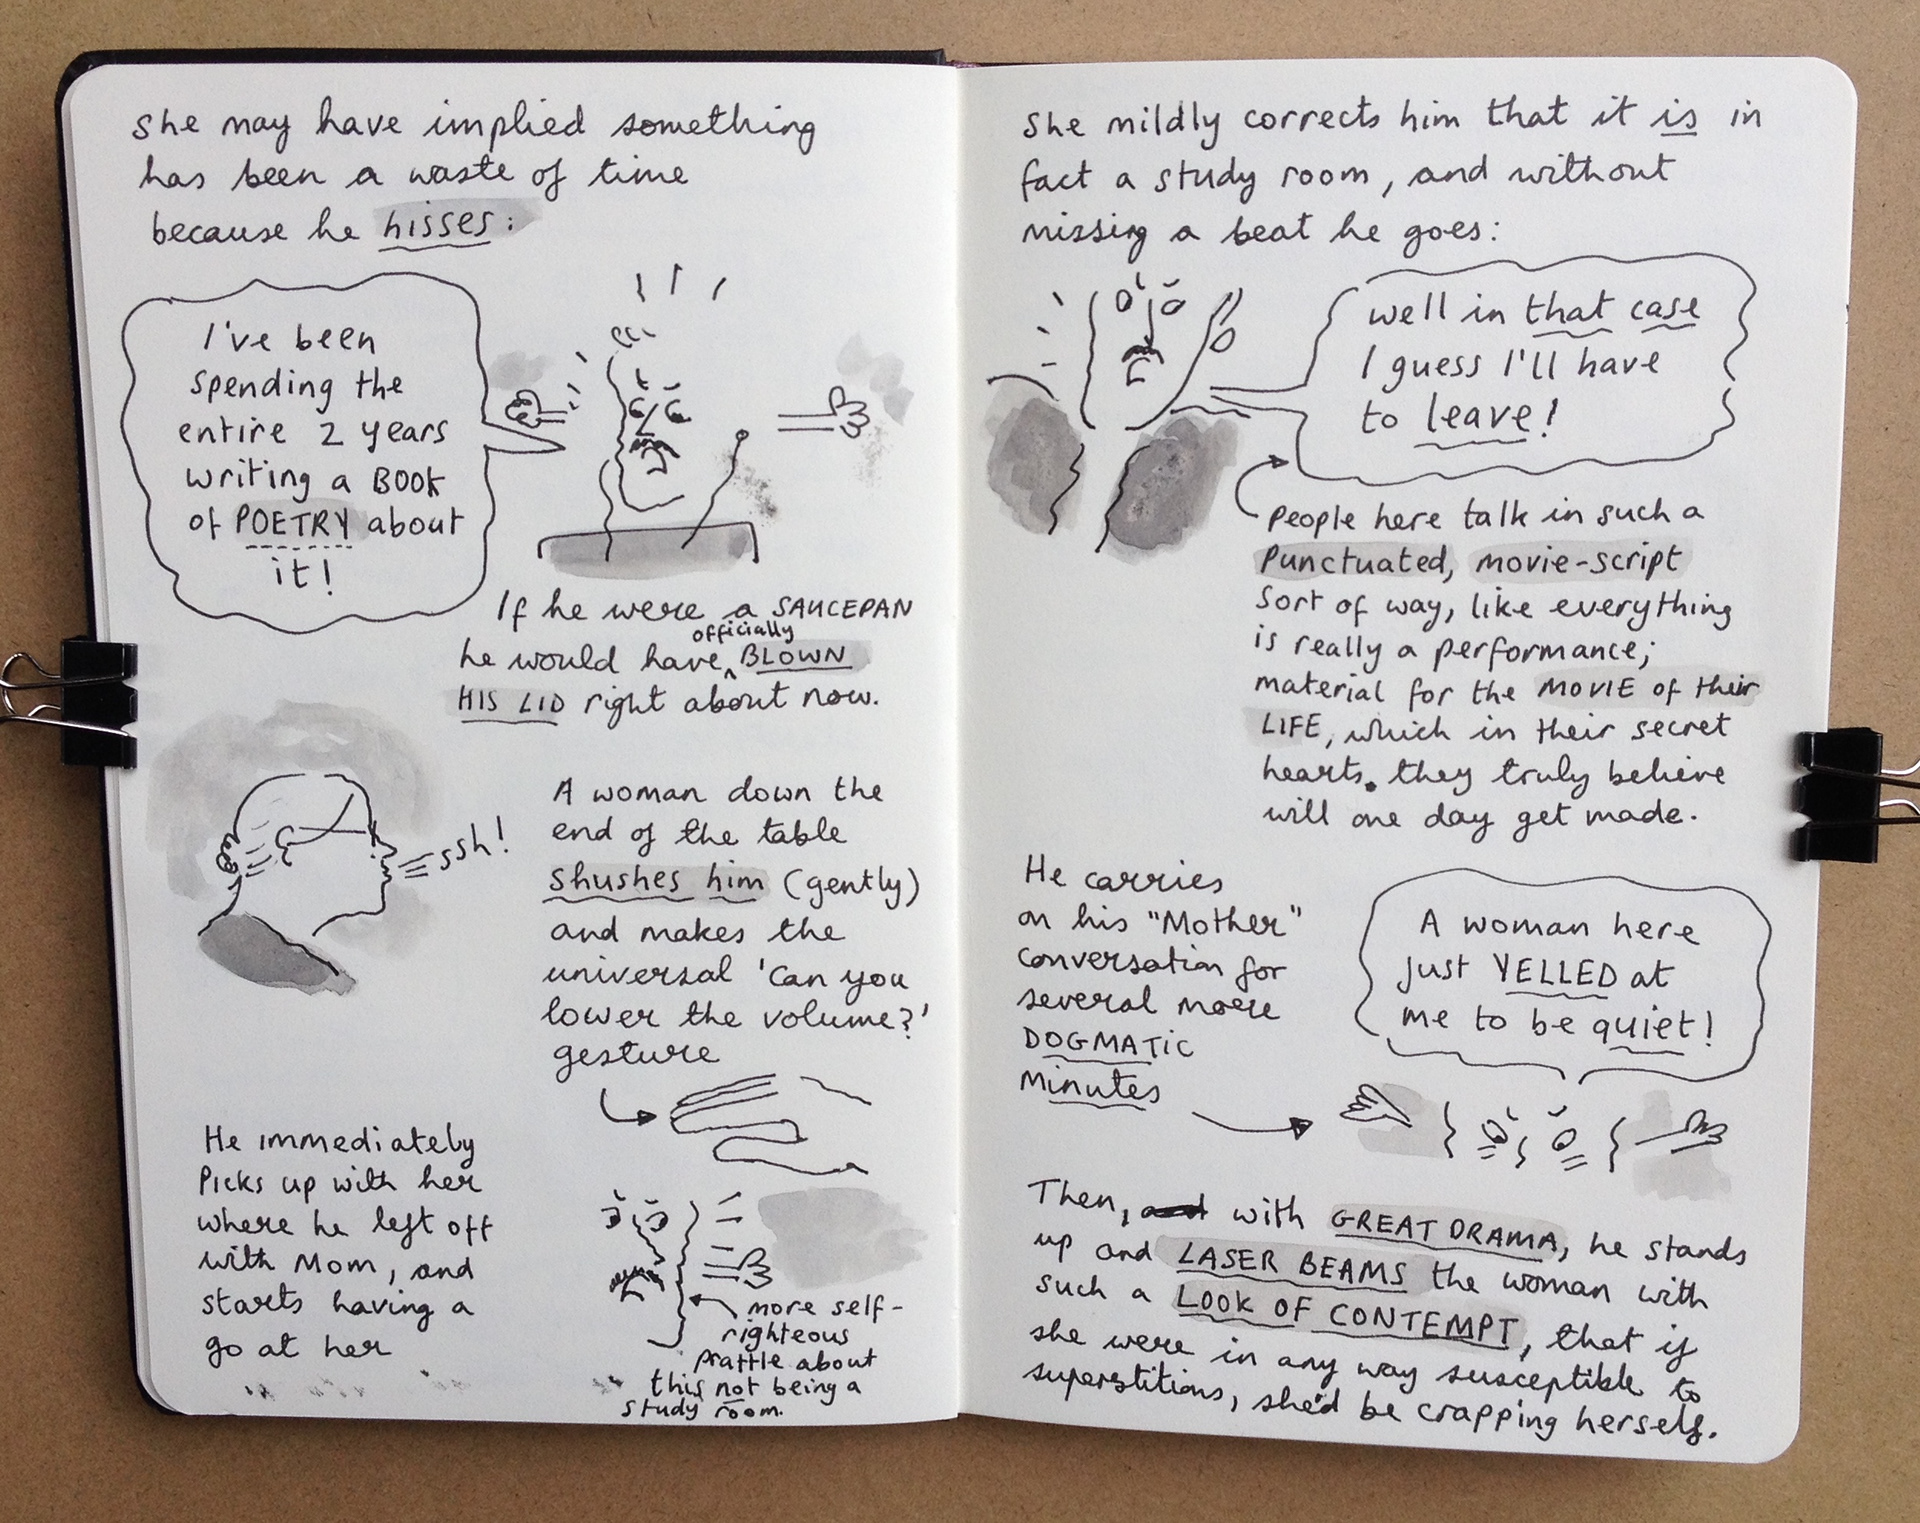 She may have implied something
has been a waste of time
because he hisses:
I've been
spending the
entire 2 years
writing a BOOK
of POETRY about
it!
If he were a SAUCEPAN
officially
he would have BLOWN
HIS LID right about now.
ssh!
A woman down the
end of the table
shushes him (gently)
and makes the
universal 'can you
lower the volume?'
gesture
He immediately
Picks up with her
where he left off
with Mom, and
starts having a
go at her
more self-
righteous
prattle about
this not being a
study room.
She mildly corrects him that it is in
fact a study room, and without
missing a beat he goes:
well in that case
I guess I'll have
to leave!
People here talk in such a
Punctuated, movie-script
sort of way, like everything
is really a performance;
material for the MOVIE of their
LIFE, which in their secret
hearts. they truly believe
will one day get made.
He carries
on his "Mother"
conversation for
several more
DOGMATIC
Minutes
A woman here
just YELLED at
me to be quiet!
Then, and with GREAT DRAMA, he stands
up and LASER BEAMS the woman with
such a LOOK OF CONTEMPT, that if
she were in any way susceptible to
superstitions, she'd be crapping herself.